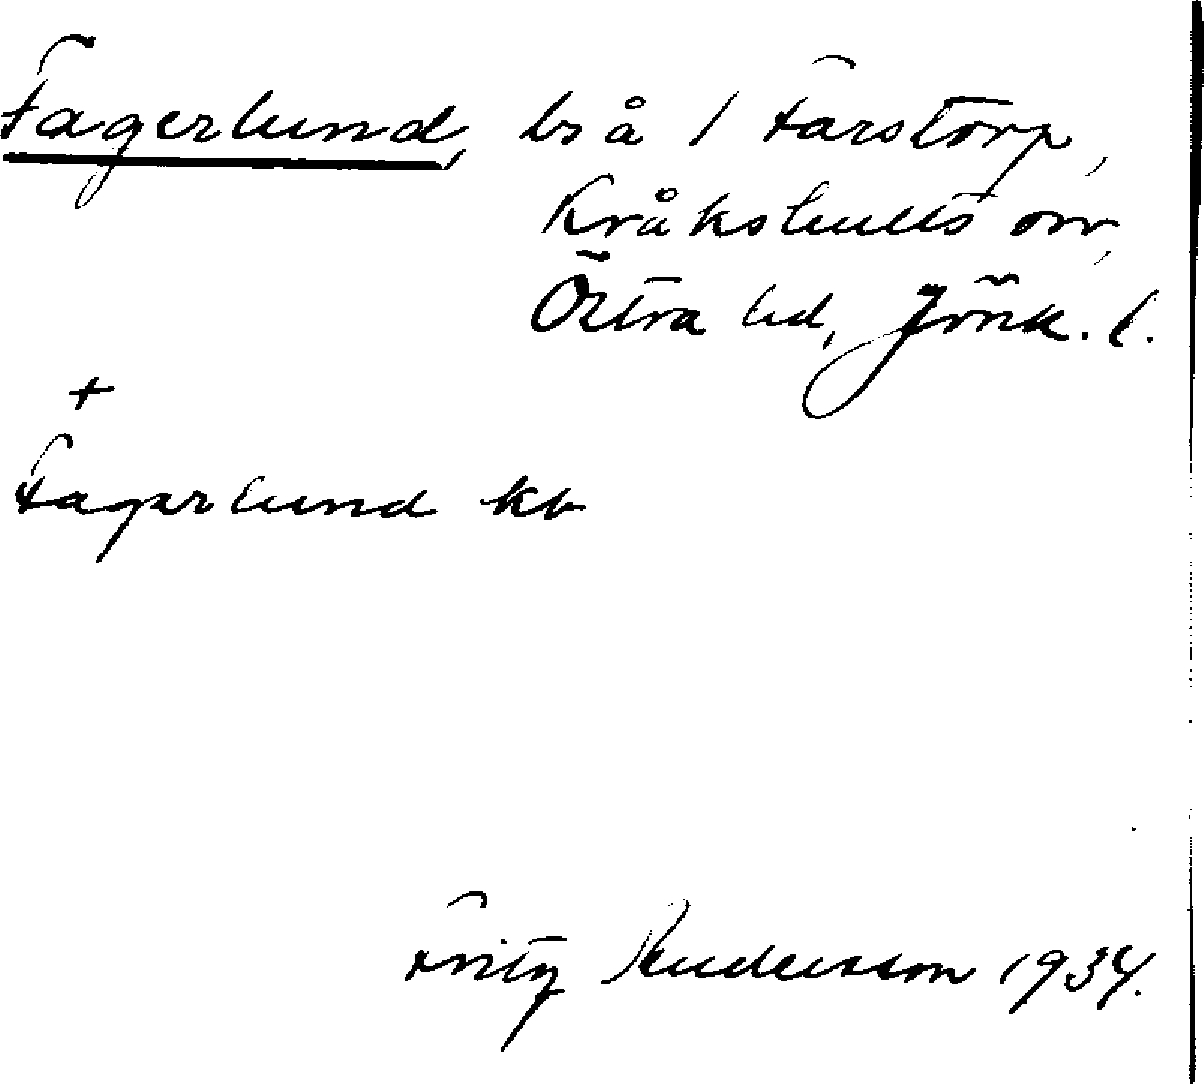 Fagerlund, bs å 1 Farstorp,
Kråkshults sn,
Östra hd, Jönk. l.
+
Fagerlund kb
Fritz Andersson 1934.